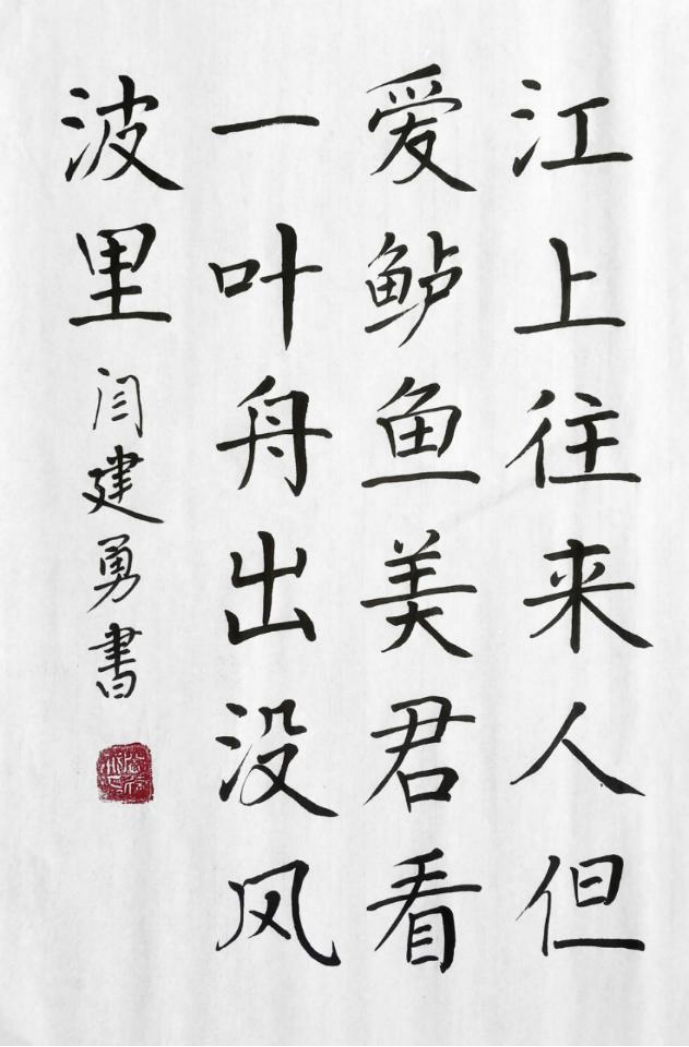 江上往来人但
爱鲈鱼美君看
一叶舟出没风
波里
闫建勇書